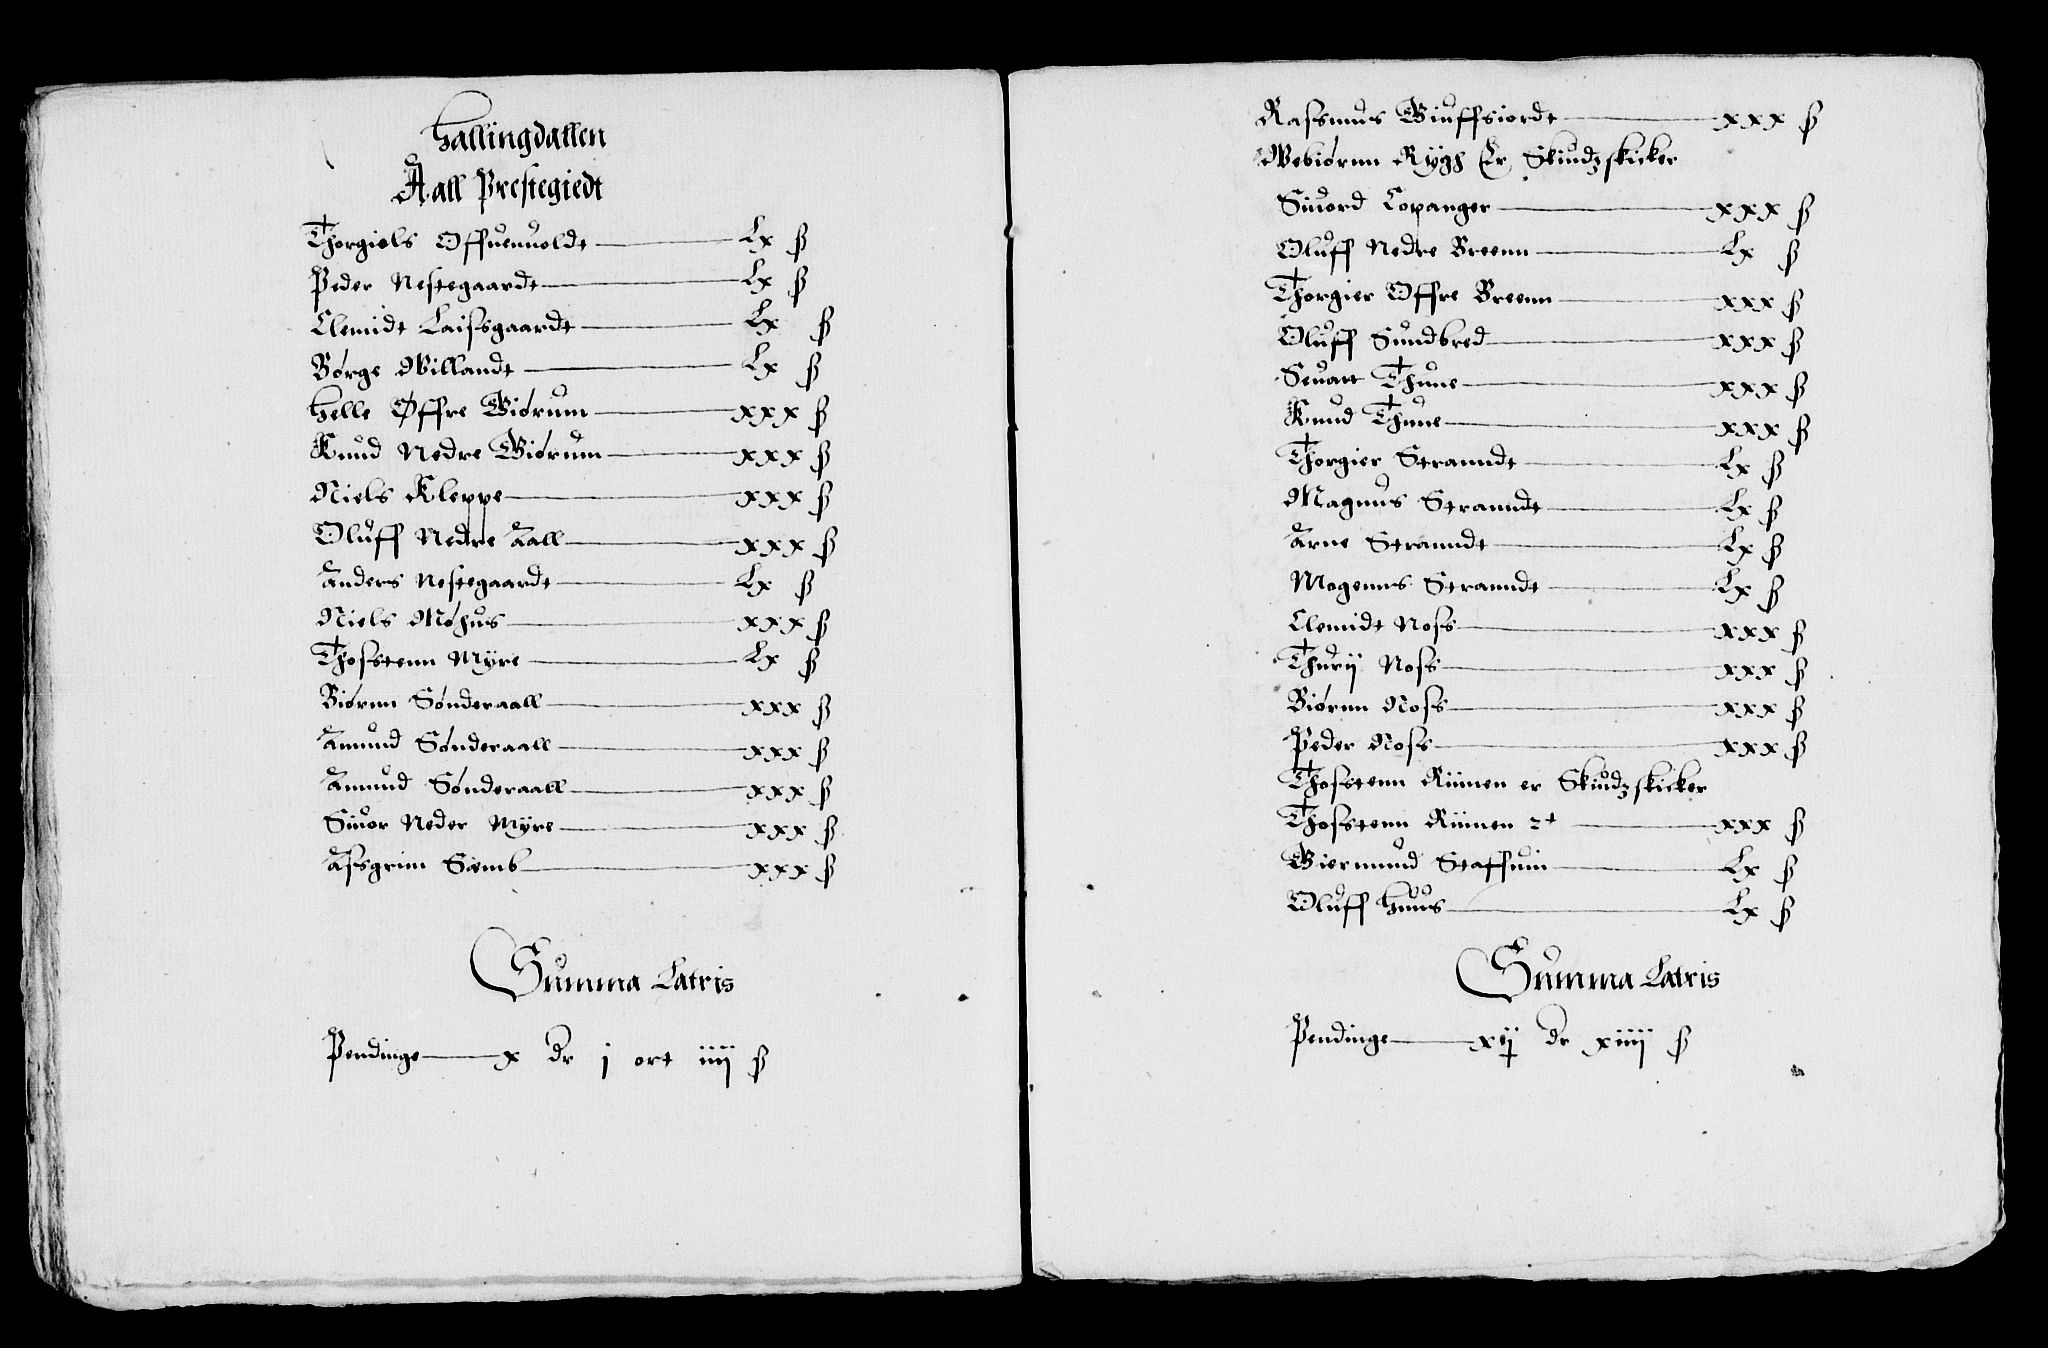 Hallingdallen
Aall Prestegiedt
Thorgiels Offuenuoldt — Lx ß
Peder Nestegaardt — Lx ß
Clemidt Laissgaardt — Lx ß
Børge Willandt — Lx ß
Helle Øffre Biørum — xxx ß
Knud Nedre Biørum — xxx ß
Niels Kleppe — xxx ß
Oluff Nedre Aall — xxx ß
Anders Nestegaardt — Lx ß
Niels Møhus — xxx ß
Thosstenn Myre — Lx ß
Biørnn Sønderaall — xxx ß
Amund Sønderaall — xxx ß
Amund Sønderaall — xxx ß
Siuor Neder Myre — xxx ß
Assgrim Sæmb — xxx ß
Summa Latris
Pendinge — x dr j ort iiij ß
Rassmus Biuffsiordt — xxx ß
Webiørnn Rygh Er Skiudzskicker
Siuord Copanger — xxx ß
Oluff Nedre Breenn — Lx ß
Thorgier Offre Breenn — xxx ß
Oluff Sundbred — xxx ß
Seuatt Thune — xxx ß
Knud Thune — xxx ß
Thorgier Stranndt — Lx ß
Magnus Stranndt — Lx ß
Arne Stranndt — Lx ß
Mogenns Stranndt — Lx ß
Clemidt Noss — xxx ß
Thurij Noss — xxx ß
Biørnn Noss — xxx ß
Peder Noss — xxx ß
Thosstenn Riimen er Skiudzskicker
Thosstenn Riimen 2t — xxx ß
Biermund Staffuin — Lx ß
Oluff Huus — Lx ß
Summa Latris
Pendinge — xij dr xiiij ß